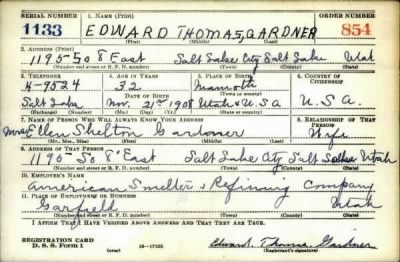 SERIAL NUMBER 1. NAME (Print) ORDER NUMBER
1133 EDWARD THOMAS GARDNER 854
(First) (Middle) (Last)
2. ADDRESS (Print)
1195 So 8 East Salt Lake City Salt Lake Utah
(Number and street or R. F. D. number) (Town) (County) (State)
3. TELEPHONE 4. AGE IN YEARS 5. PLACE OF BIRTH 6. COUNTRY OF CITIZENSHIP
H-9524 32 Mammoth
DATE OF BIRTH (Town or county)
Salt Lake Nov. 21st 1908 Utah U.S.A U.S.A.
(Exchange) (Mo.) (Day) (Yr.) (State or country)
7. NAME OF PERSON WHO WILL ALWAYS KNOW YOUR ADDRESS 8. RELATIONSHIP OF THAT PERSON
Mrs Ellen Shelton Gardner Wife
(Mr., Mrs., Miss) (First) (Middle) (Last)
9. ADDRESS OF THAT PERSON
1195 So 8 East Salt Lake City Salt Lake Utah
(Number and street or R. F. D. number) (Town) (County) (State)
10. EMPLOYER'S NAME
American Smelters & Refining Company
11. PLACE OF EMPLOYMENT OR BUSINESS
Garfield Utah
(Number and street or R. F. D. number) (Town) (County) (State)
I AFFIRM THAT I HAVE VERIFIED ABOVE ANSWERS AND THAT THEY ARE TRUE.
REGISTRATION CARD
D. S. S. Form 1 16—17105 Edward Thomas Gardner
(Registrant's signature)